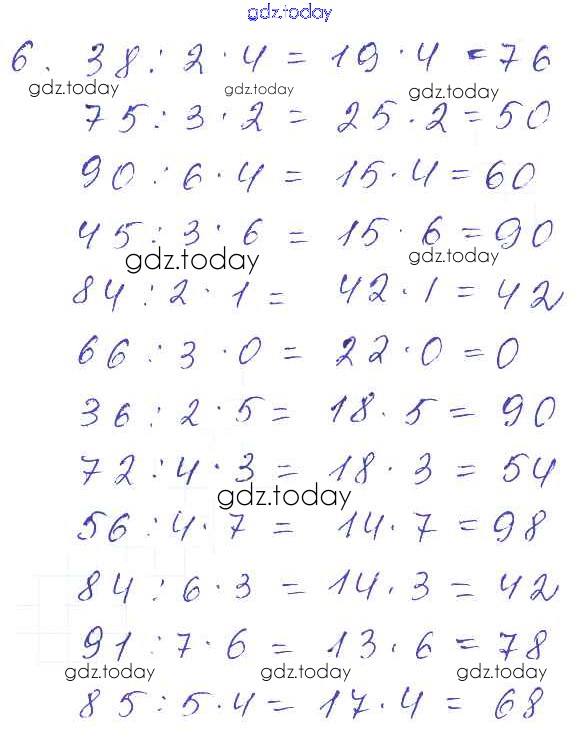 gdz.today
6. 38 : 2 · 4 = 19 · 4 = 76
gdz.today gdz.today gdz.today
75 : 3 · 2 = 25 · 2 = 50
90 : 6 · 4 = 15 · 4 = 60
45 : 3 · 6 = 15 · 6 = 90
gdz.today gdz.today
84 : 2 · 1 = 42 · 1 = 42
66 : 3 · 0 = 22 · 0 = 0
36 : 2 · 5 = 18 · 5 = 90
72 : 4 · 3 = 18 · 3 = 54
gdz.today
56 : 4 · 7 = 14 · 7 = 98
84 : 6 · 3 = 14 · 3 = 42
91 : 7 · 6 = 13 · 6 = 78
gdz.today gdz.today gdz.today
85 : 5 · 4 = 17 · 4 = 68